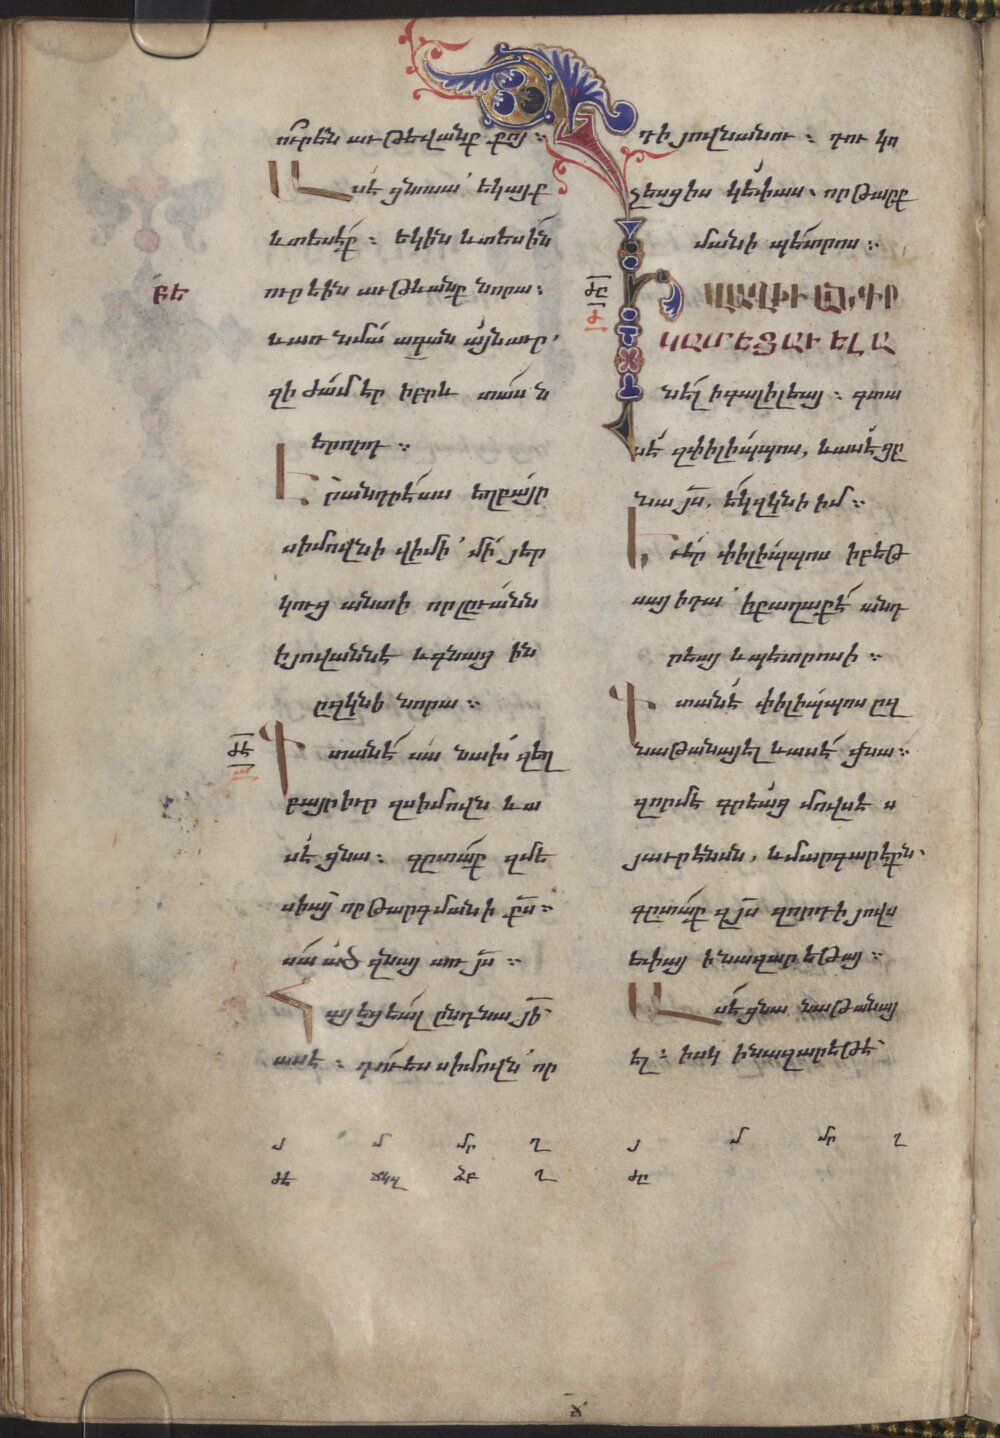 ո՞ւր են աւթեվանք քոյ։
Ասէ ցնոսա՝ եկայք
և տեսէք։ եկին և տեսին
ԲԵ
ուր էին աւթևանք նորա։
և առ նմա ագան զայն աւր՝
զի ժամ էր իբրև տասն
երորդ։
Էր անդրէաս եղբայր
սիմովնի վիմի՝ մի յեր
կուց անտի որ լըւանն
ի յովաննէ և գնացին
ըզկնի նորա։
ԺԵ
Գտանէ սա նախ զեղ
բայր իւր զսիմովն և ա
սէ ցնա։ գըտաք զմե
սիայ որ թարգմանի քս։
սա ած զնայ առ յս։
Հայեցեալ ընդ նա յի
ասէ։ դու ես սիմովն՝ որ
դի յովնանու։ դու կո
չեսցիս կէփաս, որ թարք
մանի պետրոս։
ԺԸ
Ի ՎԱՂԻՒ ԱՆԴԻՐ
ԿԱՄԵՑԱՒ ԵԼԱ
նել ի գալիլեայ։ գտա
նէ զփիլիպպոս, և ասէ ցը
նա յս. եկ զկնի իմ։
Եւ էր փիլիպպոս ի բեթ
սայիդա՝ ի քաղաքէ անդ
րեայ և պետրոսի։
Գտանէ փիլիպպոս ըզ
նաթանայել և ասէ ցնա։
զորմէ գրեաց մովսէս
յաւրէնսն, և մարգարէքն՝
գըտաք զյս զորդի յովս
եփայ ի նազարեթայ։
Ասէ ցնա նաթանայ
ել։ իսկ ի նազարեթէ՝
յ մ մր ղ յ մ մր ղ
ժե ժը